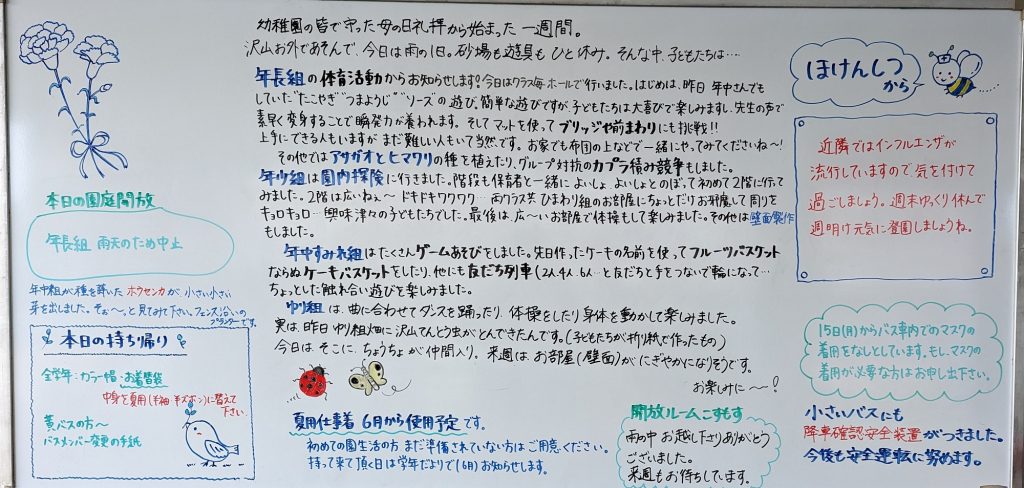 幼稚園の皆で守った母の日礼拝から始まった一週間。
沢山お外であそんで、今日は雨の1日。砂場も遊具もひと休み。そんな中、子どもたちは…
年長組の体育活動からお知らせします!今日はクラス毎ホールで行いました。はじめは、昨日年中さんでも
していた"たこやき""つまようじ""ソース"の遊び。簡単な遊びですが、子どもたちは大喜びで楽しみますし、先生の声で
素早く変身することで瞬発力が養われます。そしてマットを使ってブリッジや前まわりにも挑戦!!
上手にできる人もいますがまだ難しい人もいて当然です。お家でも布団の上などで一緒にやってみてくださいね〜!
その他ではアサガオとヒマワリの種を植えたり、グループ対抗のカプラ積み競争もしました。
年少組は園内探険に行きました。階段も保育者と一緒によいしょ、よいしょとのぼって初めて2階に行って
みました。2階は広いねぇ〜ドキドキワクワク…両クラス共ひまわり組のお部屋にちょっとだけお邪魔して周りを
キョロキョロ…興味津々の子どもたちでした。最後は、広〜いお部屋で体操もして楽しみました。その他は壁面製作
もしました。
年中すみれ組はたくさんゲームあそびをしました。先日作ったケーキの名前を使ってフルーツバスケット
ならぬケーキバスケットをしたり、他にも友だち列車(2人4人、6人…と友だちと手をつないで輪になって…
ちょっとした触れ合い遊びを楽しみました。
ゆり組は、曲に合わせてダンスを踊ったり、体操をしたり身体を動かして楽しみました。
実は、昨日ゆり組畑に沢山てんとう虫がとんできたんです。(子どもたちが折り紙で作ったもの)
今日は、そこに、ちょうちょが仲間入り。来週は、お部屋(壁面)がにぎやかになりそうです。
お楽しみに〜!
本日の園庭開放
年長組 雨天のため中止
年中組が種を蒔いたホウセンカが、小さい小さい
芽を出しました。そぉ〜っと見てみて下さい。フェンス沿いの
プランターです。
本日の持ち帰り
全学年:カラー帽・お着替袋
中身を夏用(半袖・半ズボン)に替えて
下さい。
黄バスの方へ
バスメンバー変更の手紙
夏用仕事着 6月から使用予定です。
初めての園生活の方、まだ準備されていない方はご用意ください。
持って来て頂く日は学年だよりで(6月)お知らせします。
開放ルームこすもす
雨の中お越し下さりありがとう
ございました。
来週もお待ちしています。
ほけんしつ
から
近隣ではインフルエンザが
流行していますので、気を付けて
過ごしましょう。週末ゆっくり休んで
週明け元気に登園しましょうね。
15日(月)からバス車内でのマスクの
着用をなしとしています。もし、マスクの
着用が必要な方はお申し出下さい。
小さいバスにも
降車確認安全装置がつきました。
今後も安全運転に努めます。